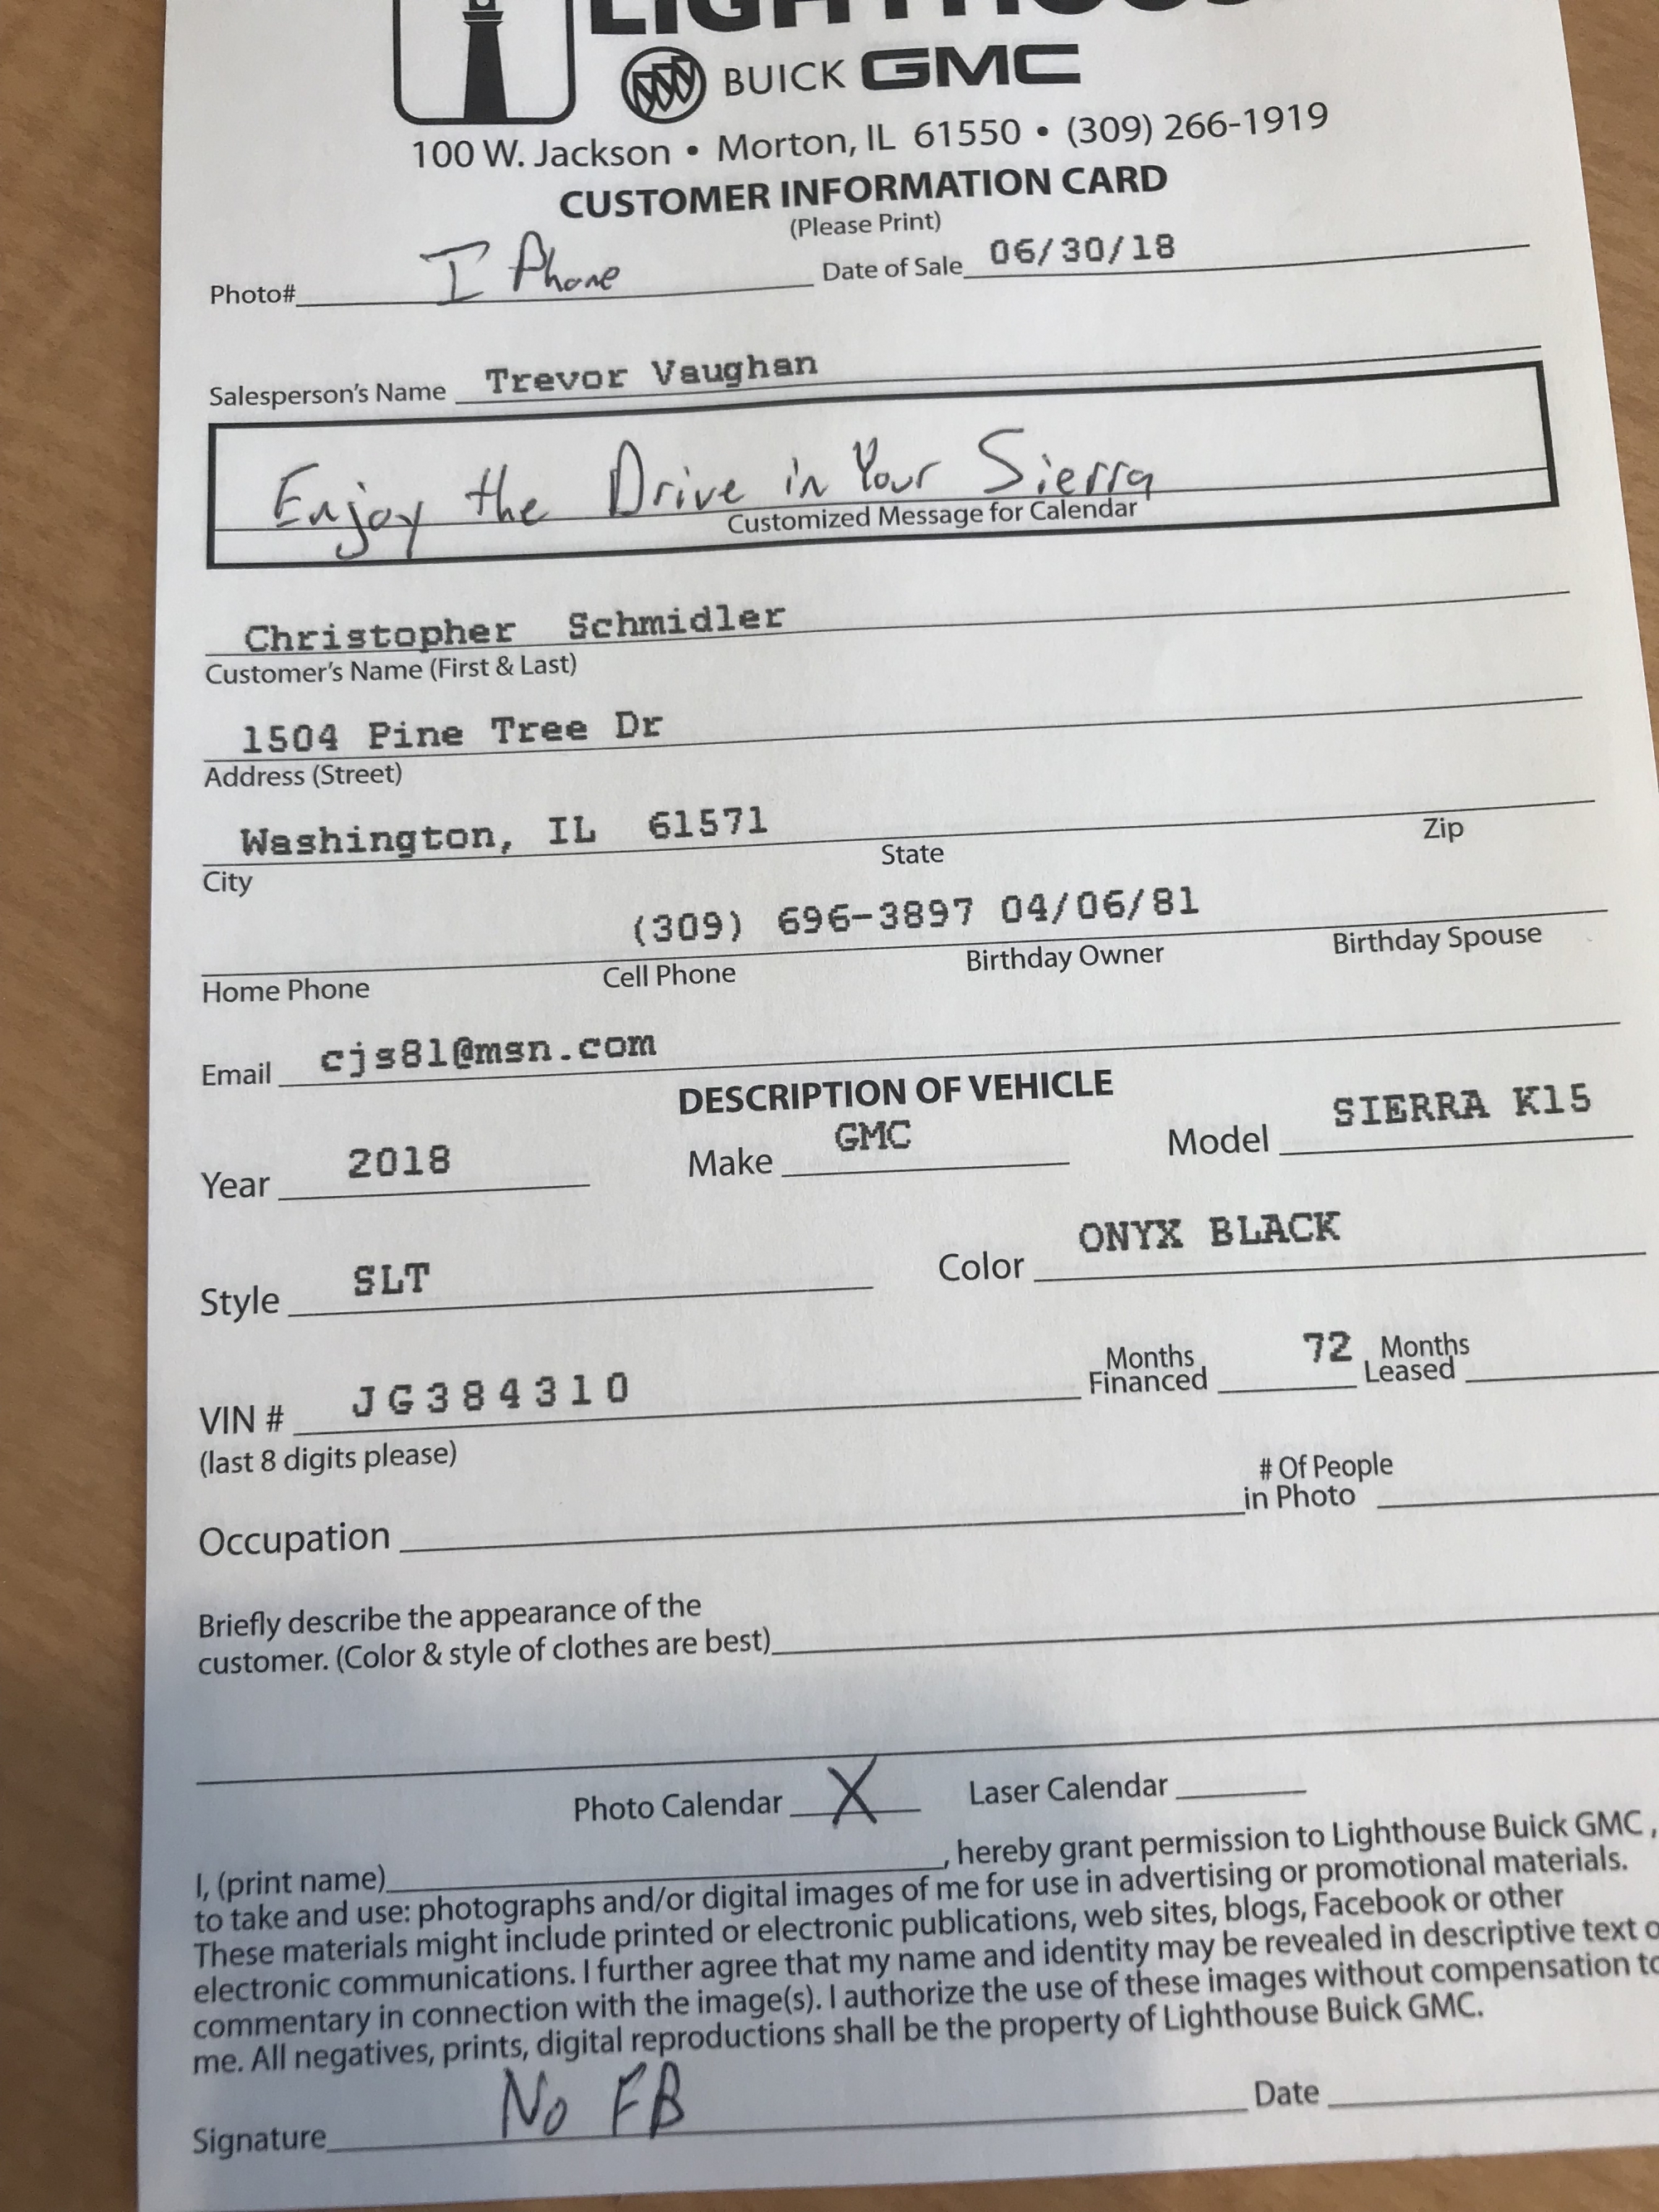 BUICK GMC
100 W. Jackson • Morton, IL 61550 • (309) 266-1919
CUSTOMER INFORMATION CARD
(Please Print)
Photo# I Phone Date of Sale 06/30/18
Salesperson's Name Trevor Vaughan
Enjoy the Drive in Your Sierra
Customized Message for Calendar
Christopher Schmidler
Customer's Name (First & Last)
1504 Pine Tree Dr
Address (Street)
Washington, IL 61571
City State Zip
(309) 696-3897 04/06/81
Home Phone Cell Phone Birthday Owner Birthday Spouse
Email cjs81@msn.com
DESCRIPTION OF VEHICLE
Year 2018 Make GMC Model SIERRA K15
Style SLT Color ONYX BLACK
VIN # JG384310 Months Financed 72 Months Leased
(last 8 digits please)
Occupation # Of People in Photo
Briefly describe the appearance of the
customer. (Color & style of clothes are best)
Photo Calendar X Laser Calendar
I, (print name) , hereby grant permission to Lighthouse Buick GMC ,
to take and use: photographs and/or digital images of me for use in advertising or promotional materials.
These materials might include printed or electronic publications, web sites, blogs, Facebook or other
electronic communications. I further agree that my name and identity may be revealed in descriptive text o
commentary in connection with the image(s). I authorize the use of these images without compensation to
me. All negatives, prints, digital reproductions shall be the property of Lighthouse Buick GMC.
Signature No FB Date